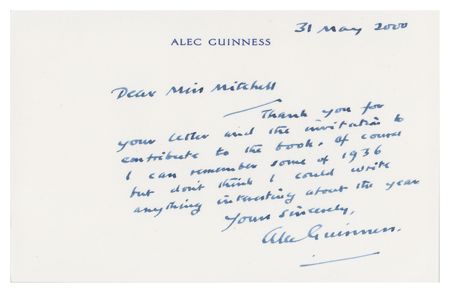 31 May 2000
ALEC GUINNESS
Dear Miss Mitchell
Thank you for
your letter and the invitation to
contribute to the book. Of course
I can remember some of 1936
but don't think I could write
anything interesting about the year
Yours sincerely,
Alec Guinness.